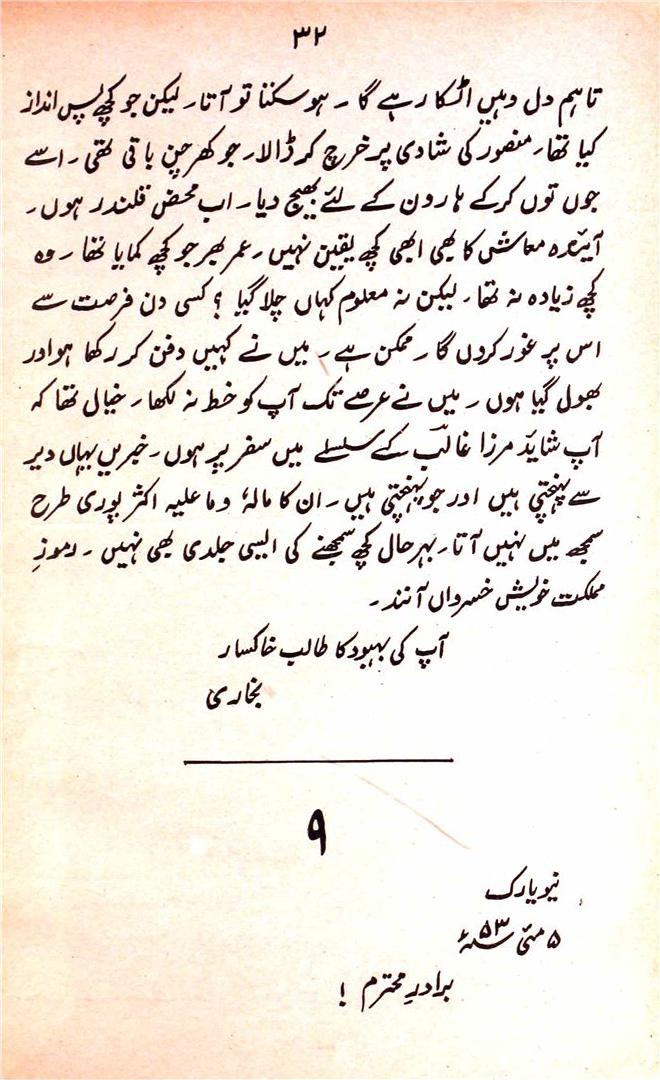 ۳۲
تاہم دل وہیں اٹکا رہے گا ۔ ہوسکتا تو آتا ۔ لیکن جو کچھ پس انداز
کیا تھا ۔ منصور کی شادی پر خرچ کر ڈالا ۔ جو کھرچن باقی تھی ۔ اسے
جوں توں کرکے ہارون کے لئے بھیج دیا ۔ اب محض قلندر ہوں ۔
آیندہ معاش کا بھی ابھی کچھ یقین نہیں ۔ عمر بھر جو کچھ کمایا تھا ۔ وہ
کچھ زیادہ نہ تھا ۔ لیکن نہ معلوم کہاں چلا گیا ؟ کسی دن فرصت سے
اس پر غور کروں گا ۔ ممکن ہے ۔ میں نے کہیں دفن کر رکھا ہو اور
بھول گیا ہوں ۔ میں نے عرصے تک آپ کو خط نہ لکھا ۔ خیال تھا کہ
آپ شاید مرزا غالبؔ کے سلسلے میں سفر پر ہوں ۔ خبریں یہاں دیر
سے پہنچتی ہیں اور جو پہنچتی ہیں ۔ ان کا مالہٗ وما علیہ اکثر پوری طرح
سمجھ میں نہیں آتا ۔ بہرحال کچھ سمجھنے کی ایسی جلدی بھی نہیں ۔ رموزِ
مملکت خویش خسرواں دانند ۔
آپ کی بہبود کا طالب خاکسار
بخاری
۹
نیویارک
۵ مئی ۵۳ء
برادرِ محترم !